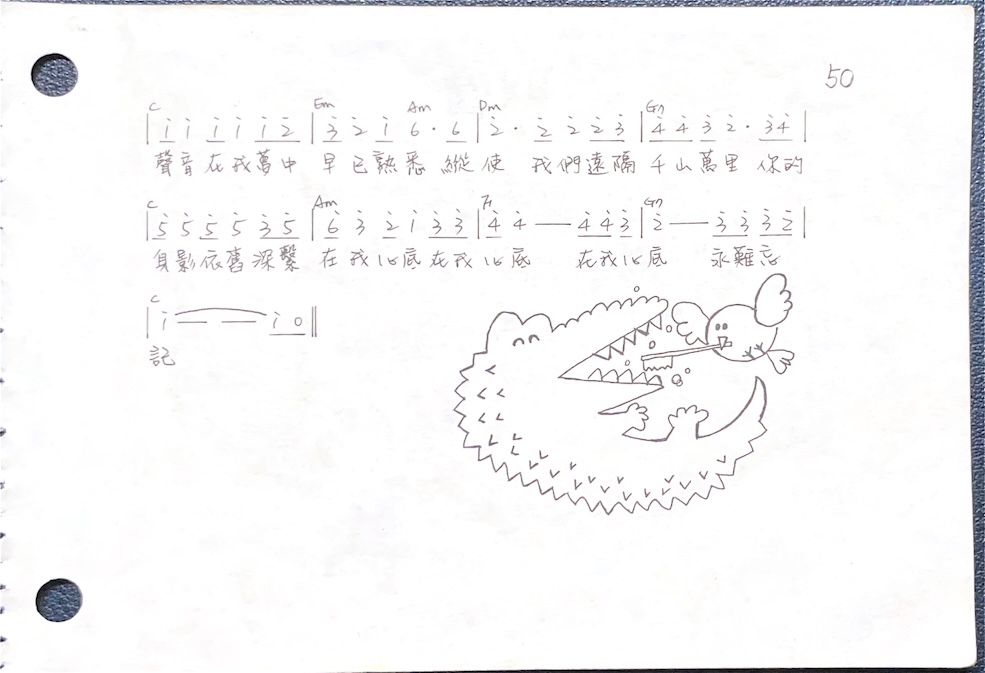 50
C Em Am Dm G7
| i i i i i 2 | 3 2 i 6 · 6 | 2 · 2 2 2 3 | 4 4 3 2 · 3 4 |
聲音在我萬中 早已熟悉 縱使 我們遠隔 千山萬里 你的
C Am F G7
| 5 5 5 5 3 5 | 6 3 2 i 3 3 | 4 4 — 4 4 3 | 2 — 3 3 3 2 |
身影依舊深繫 在我心底在我心底 在我心底 永難忘
C
| i — — i 0 ||
記